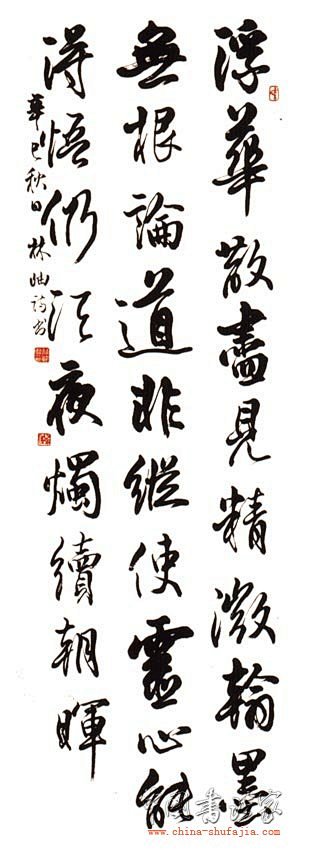 浮華散盡見精微翰墨
無根論道非縱使靈心能
得悟仍須夜燭續朝暉
辛巳秋日林岫詩書
书法家
www.china-shufajia.com